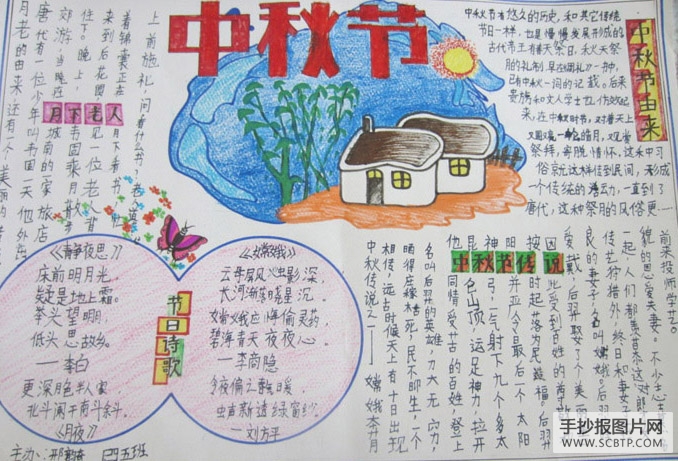 中秋节
中秋节由来
中秋节有悠久的历史,和其它传统
节日一样,也是慢慢发展形成的
古代帝王有春天祭日,秋天祭
月的礼制,早在《周礼》一种,
已有中秋一词的记载。后来
贵族和文人学士也仿效起
来,在中秋时节,对着天上
又圆一轮皓月,观赏
祭拜,寄托情怀,这种习
俗就这样传到民间,形成
一个传统的活动,一直到了
唐代,这种祭月的风俗更
月下老人
月老的由来还有一个美丽的
唐代有一位少年叫韦固一天他外出
郊游,当晚在城南的宋城旅店
住下。晚上,韦固乘月散步
来到后花园见一位老
着锦囊正在月下看书
上前施礼,问看什么书
节日诗歌
《静夜思》
床前明月光,
疑是地上霜。
举头望明月,
低头思故乡。
—李白
更深月色半人家
北斗阑干南斗斜。
《月夜》
《嫦娥》
云母屏风烛影深,
长河渐落晓星沉。
嫦娥应悔偷灵药,
碧海青天夜夜心。
—李商隐
今夜偏知春气暖,
虫声新透绿窗纱。
—刘方平
中秋节传说
中秋传说之一——嫦娥奔月
相传,远古时候天上有十日出现
晒得庄稼枯死,民不聊生,一个
名叫后羿的英雄,力大无穷,
同情受苦的百姓,登上
昆仑山顶,运足神力,拉开
神弓,一气射下九个多太
阳,并严令最后一个太阳
按时起落,为民造福。后羿
因此受到百姓的尊敬
爱戴,后羿娶了个美丽
良的妻子,名叫嫦娥。后羿
传艺狩猎外,终日和妻子
一起,人们都羡慕这对郎
貌的恩爱夫妻。不少志士
前来投师学艺。
主办:邢 四五班
手抄报图片网
WWW.SCBTP.COM